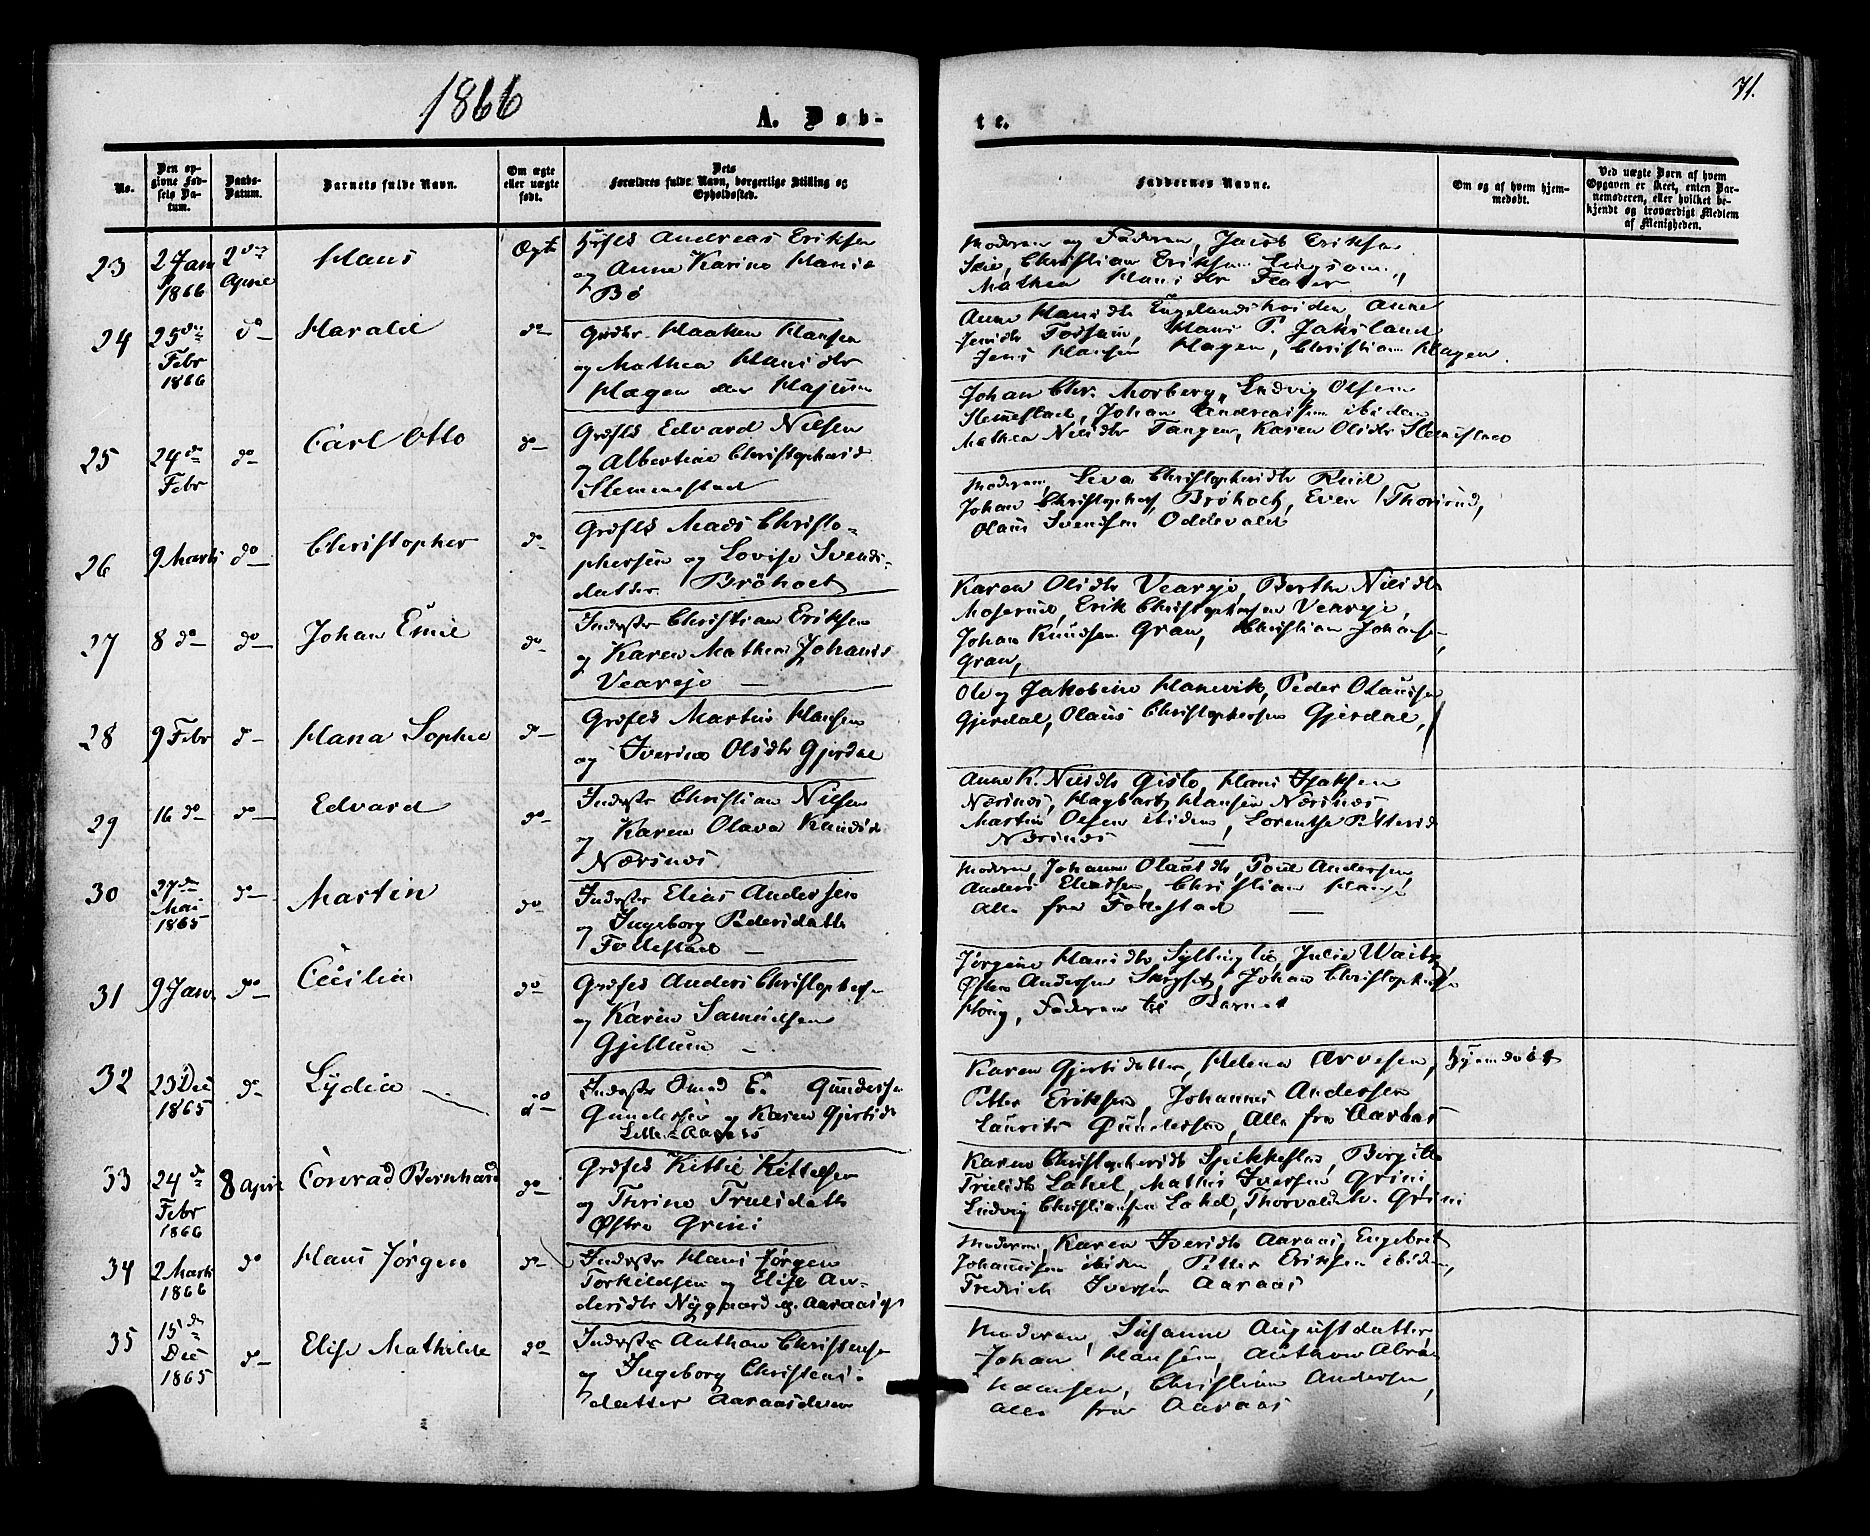 1866
A. Døb-
te.
71.
No.
Den op-
givne Fød-
sels Da-
tum.
Daabs-
Datum.
Barnets fulde Navn.
Om ægte
eller uægte
født.
Dets
Forældres fulde Navn, borgerlige Stilling og
Opholdssted.
Faddernes Navne.
Om og af hvem hjem-
medøbt.
Ved uægte Børn af hvem
Opgaven er skeet, enten Bar-
nemoderen, eller hvilket be-
kjendt og troværdigt Medlem
af Menigheden.
23
2 Jan
1866
2den
April
Hans
Ægte
Andreas Eriksen
og Anne Karine Hansd
Bø
Moderen og Faderen, Jacob Eriksen
Christian Eriksen
Mathea Hansdtr
24
25de
Febr
1866
do
Harald
do
Haaken Hansen
og Mathea Hansdtr
Hagen
Anne Hansdtr Engelandsheiden, Anne
Jensdtr Torsam, Hans P. Jaksland
Jens Hansen Hagen, Christian Hagen.
25
24de
Febr
do
Carl Otto
do
Grdfls Edvard Nilsen
og Albertine Christophersd
Slemmestad
Johan Chr. Morberg, Ludvig Olsen
Slemestad, Johan Andreassen ibidem
Mathea Nilsdtr Tangen, Karen Olsdtr Slemestad
26
9 Marts
do
Christopher
do
Grdfls Mads Christo-
phersen og Lovise Svends-
datter Brøholt
Moderen, Christophersdtr
Johan Christophers Brøholt, Even Thorsrud,
Olaus Svendsen Oddevald
27
8 do
do
Johan Emil
do
Inderster Christian Eriksen
og Karen Mathea Johansd
Vearsjø
Karen Olsdtr Vearsjø, Berthe Nilsdtr
Moserud, Erik Christophersen Vearsjø,
Johan Knudsen Gran, Christian Johans-
Gran,
28
9 Febr
do
Hana Sophie
do
Grdfls Martin Hansen
og Iverine Olsdtr Gjerdal
Ole og Jakobine Hanevik, Peder Olaussen
Gjerdal, Olaus Christophersen Gjerdal,
29
16 do
do
Edvard
do
Inderster Christian Nilsen
og Karen Olava Knudsd
Nærsnes
Anne K. Nilsdtr Gislo, Hans Isaksen
Nærsnes, Hagbart Hansen Nærsnes
Martin Olsen ibidem, Lorentse Pettersd
Nærsnes
30
27de
Mai
1865
do
Martin
do
Inderster Elias Andersen
og Ingeborg Pedersdatter
Follestad
Moderen, Johanne Olausdtr, Poul Andersen
Anders Eliassen, Christian
Alle fra Follestad
31
9 Jan.
do
Cecilia
do
Grdfls Anders Christophersen
og Karen Samuelsen
Gjellum
Jørgine Hansdtr Sylling, Julie
Andersen Johan Christophersen
Høng, Faderen til Barnet
32
23 Dec
1865
do
Lydia
do
Inderster E. Gundersen
Gundersen og Karen Gjertsdtr
Karen Gjertsdatter, Helene Arvesen,
Petter Eriksen, Johannes Andersen
Laurits Gundersen, Alle fra Aaraas
hjemdøbt
33
24de
Febr
1866
8 April
Conrad Bernhard
do
Grdfls Kittil Kittelsen
og Thrine Trulsdatter
Østre Grini
Karen Christophersdtr Spikkestad, Birgitte
Trulsdtr Lahel, Mathis Iversen Grini,
Ludvig Christiansen Lahel, Thorvald K. Grini
34
2 Marts
1866
do
Hans Jørgen
do
Inderster Hans Jørgen
Torkildsen og Elise An-
dersdtr Nygaard
Moderen, Karen Iversdtr Aaraas, Engebret
Johannesen ibidem, Petter Eriksen ibidem,
Fredrich Iversen Aaraas
35
15de
Dec
1865
do
Elise Mathilde
do
Inderster Anthon Christensen
og Ingeborg Christens-
datter
Moderen, Susanne Augustdatter,
Johan Hansen, Anthon Abra-
hamsen, Christian Andersen,
alle fra Aaraas